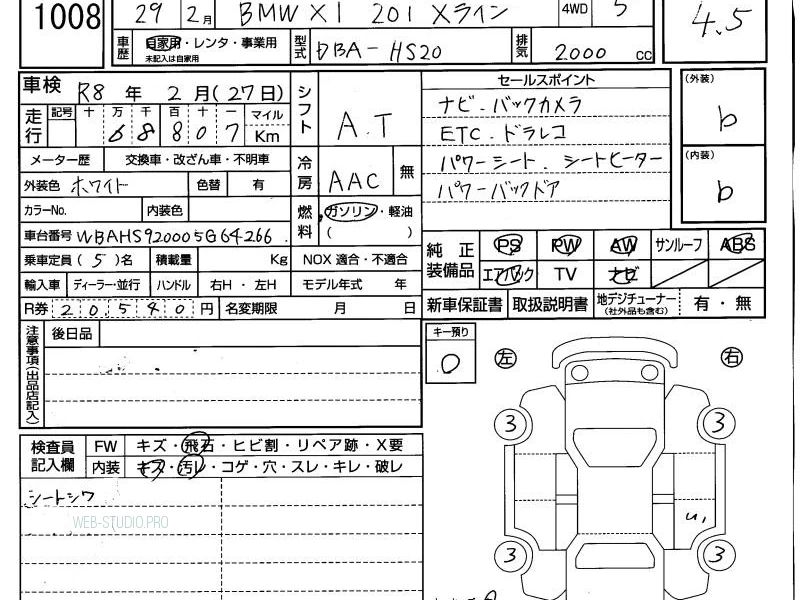 1008 29 2月 BMW X1 20i Xライン 4WD 5 4.5
車歴 自家用・レンタ・事業用 未記入は自家用 型式 DBA-HS20 排気 2000 cc
車検 R8 年 2 月(27日) シフト A.T セールスポイント (外装) b
走行 記号 十 万 千 百 十 一 マイル Km
6 8 8 0 7
ナビ・バックカメラ
ETC・ドラレコ
パワーシート、シートヒーター
パワーバックドア
(内装) b
メーター歴 交換車・改ざん車・不明車 冷房 AAC 無
外装色 ホワイト 色替 有
カラーNo. 内装色 燃料 ガソリン・軽油 ( )
車台番号 WBAHS920005G64266
純正装備品 PS PW AW サンルーフ ABS
エアバック TV ナビ
乗車定員(5)名 積載量 Kg NOX 適合・不適合
輸入車 ディーラー・並行 ハンドル 右H・左H モデル年式 年
新車保証書 取扱説明書 地デジチューナー (社外品も含む) 有・無
R券 20,540 円 名変期限 月 日
注意事項(出品店記入) 後日品
キー預り 0 左 右
検査員記入欄 FW キズ・飛石・ヒビ割・リペア跡・X要
内装 キズ・汚レ・コゲ・穴・スレ・キレ・破レ
シートシワ
WEB-STUDIO.PRO
3 3
U1
3 3